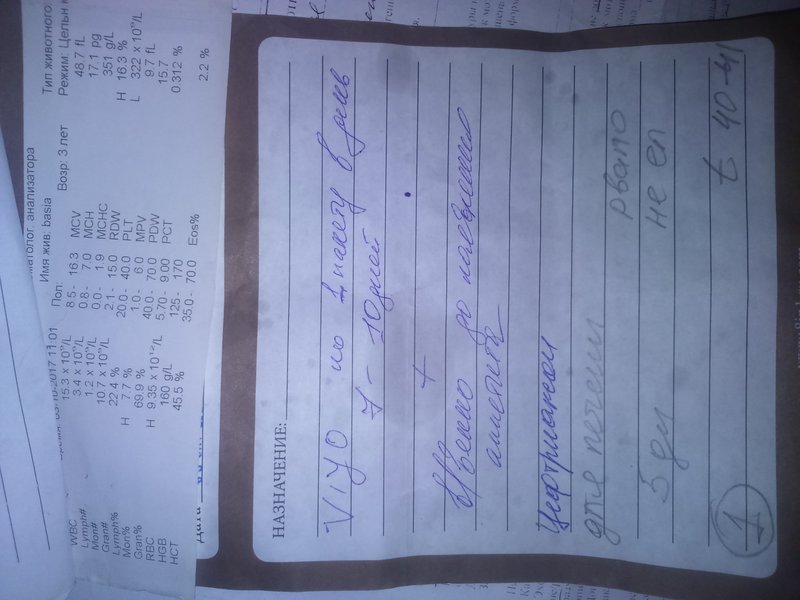 матолог. анализатора
Имя жив: basia
Тип животного:
Время: 03-10-2017 11:01
Пол:
Возр: 3 лет
Режим: Цельн к
WBC 15.3 x 10⁹/L 8.5 - 16.3 MCV 48.7 fL
Lymph# 3.4 x 10⁹/L 0.8 - 7.0 MCH 17.1 pg
Mon# 1.2 x 10⁹/L 0.0 - 1.9 MCHC 351 g/L
Gran# 10.7 x 10⁹/L 2.1 - 15.0 RDW H 16.3 %
Lymph% 22.4 % 20.0 - 40.0 PLT L 322 x 10⁹/L
Mon% H 7.7 % 1.0 - 6.0 MPV 9.7 fL
Gran% 69.9 % 40.0 - 70.0 PDW 15.7
RBC H 9.35 x 10¹²/L 5.70 - 9.00 PCT 0.312 %
HGB 160 g/L 125 - 170
HCT 45.5 % 35.0 - 70.0 Eos% 2.2 %
Дата
НАЗНАЧЕНИЕ:
VIYO по 1 пакету в день
7 - 10 дней
+
до
аппетита
Цефтриаксон
для печени рвало
5 дн не ел
1 t 40-41